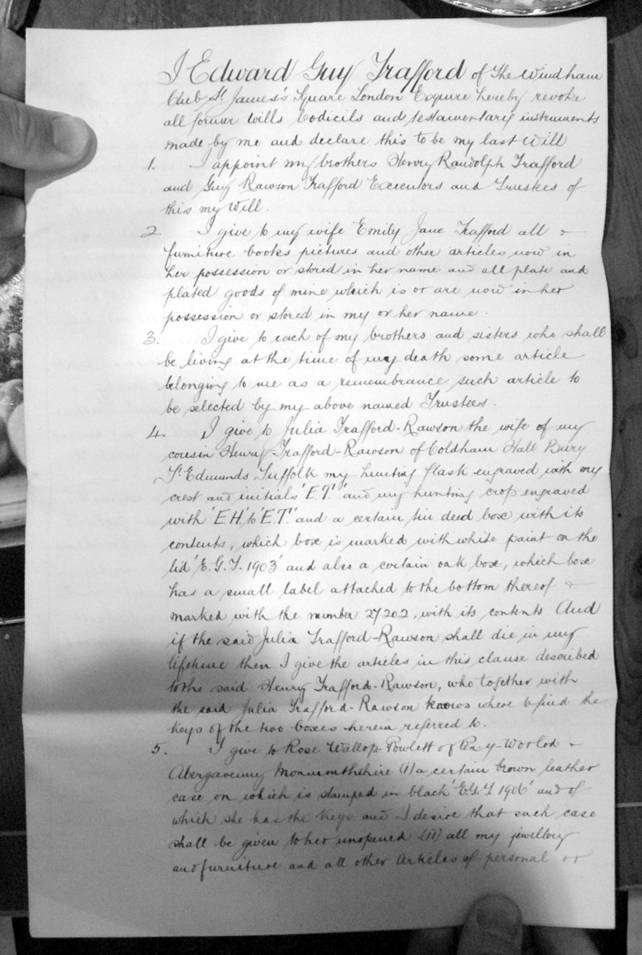 I Edward Guy Trafford of The Windham
Club St James's Square London Esquire hereby revoke
all former wills Codicils and testamentary instruments
made by me and declare this to be my last Will
1. I appoint my brothers Henry Randolph Trafford
and Guy Rawson Trafford Executors and Trustees of
this my Will.
2 I give to my wife Emily Jane Trafford all
furniture books pictures and other articles now in
her possession or stored in her name and all plate and
plated goods of mine which is or are now in her
possession or stored in my or her name.
3. I give to each of my brothers and sisters who shall
be living at the time of my death some article
belonging to me as a remembrance such article to
be selected by my above named Trustees.
4. I give to Julia Trafford-Rawson the wife of my
cousin Henry Trafford-Rawson of Coldham Hall Bury
St Edmunds Suffolk my hunting flask engraved with my
crest and initials 'E.T.' and my hunting crop engraved
with 'E.H. to E.T.' and a certain tin deed box with its
contents, which box is marked with white paint on the
lid 'E.G.T. 1903' and also a certain oak box, which box
has a small label attached to the bottom thereof
marked with the number 27202, with its contents And
if the said Julia Trafford-Rawson shall die in my
lifetime then I give the articles in this clause described
to the said Henry Trafford-Rawson, who together with
the said Julia Trafford-Rawson knows where to find the
keys of the two boxes herein referred to.
5. I give to Rose Wallop-Powlett of
Abergavenny Monmouthshire (I) a certain brown leather
case on which is stamped in black 'E.G.T 1906' and of
which she has the keys and I desire that such case
shall be given to her unopened (II) all my jewellery
and furniture and all other articles of personal or